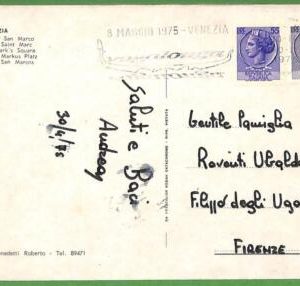 ZIA
San Marco
Saint Marc
ark's Square
Markus Platz
San Marcos
8 MAGGIO 1975 - VENEZIA
55
55
Saluti e Baci
30/4/75
Gentile Famiglia
Roventi Ubaldo
Filippo degli Ugo
FIRENZE
enedetti Roberto - Tel. 89471